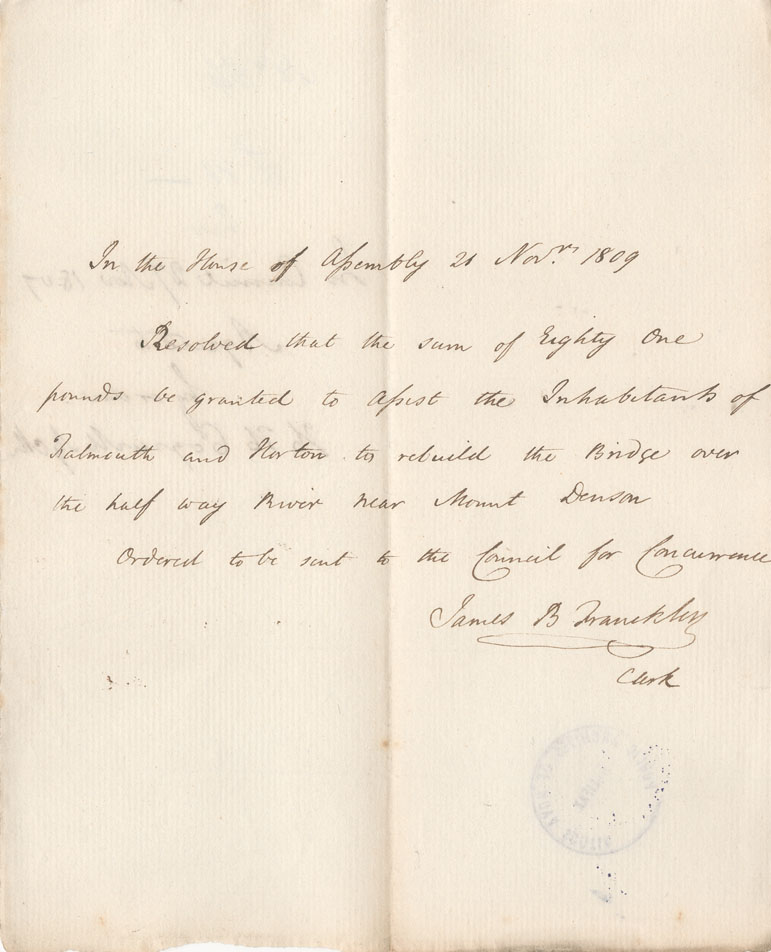 In the House of Assembly 21 Novr. 1809
Resolved that the sum of Eighty One
pounds be granted to Assist the Inhabitants of
Falmouth and Horton to rebuild the Bridge over
the half way River near Mount Denson
Ordered to be sent to the Council for Concurrence
James B Franckley
Clerk
PUBLIC